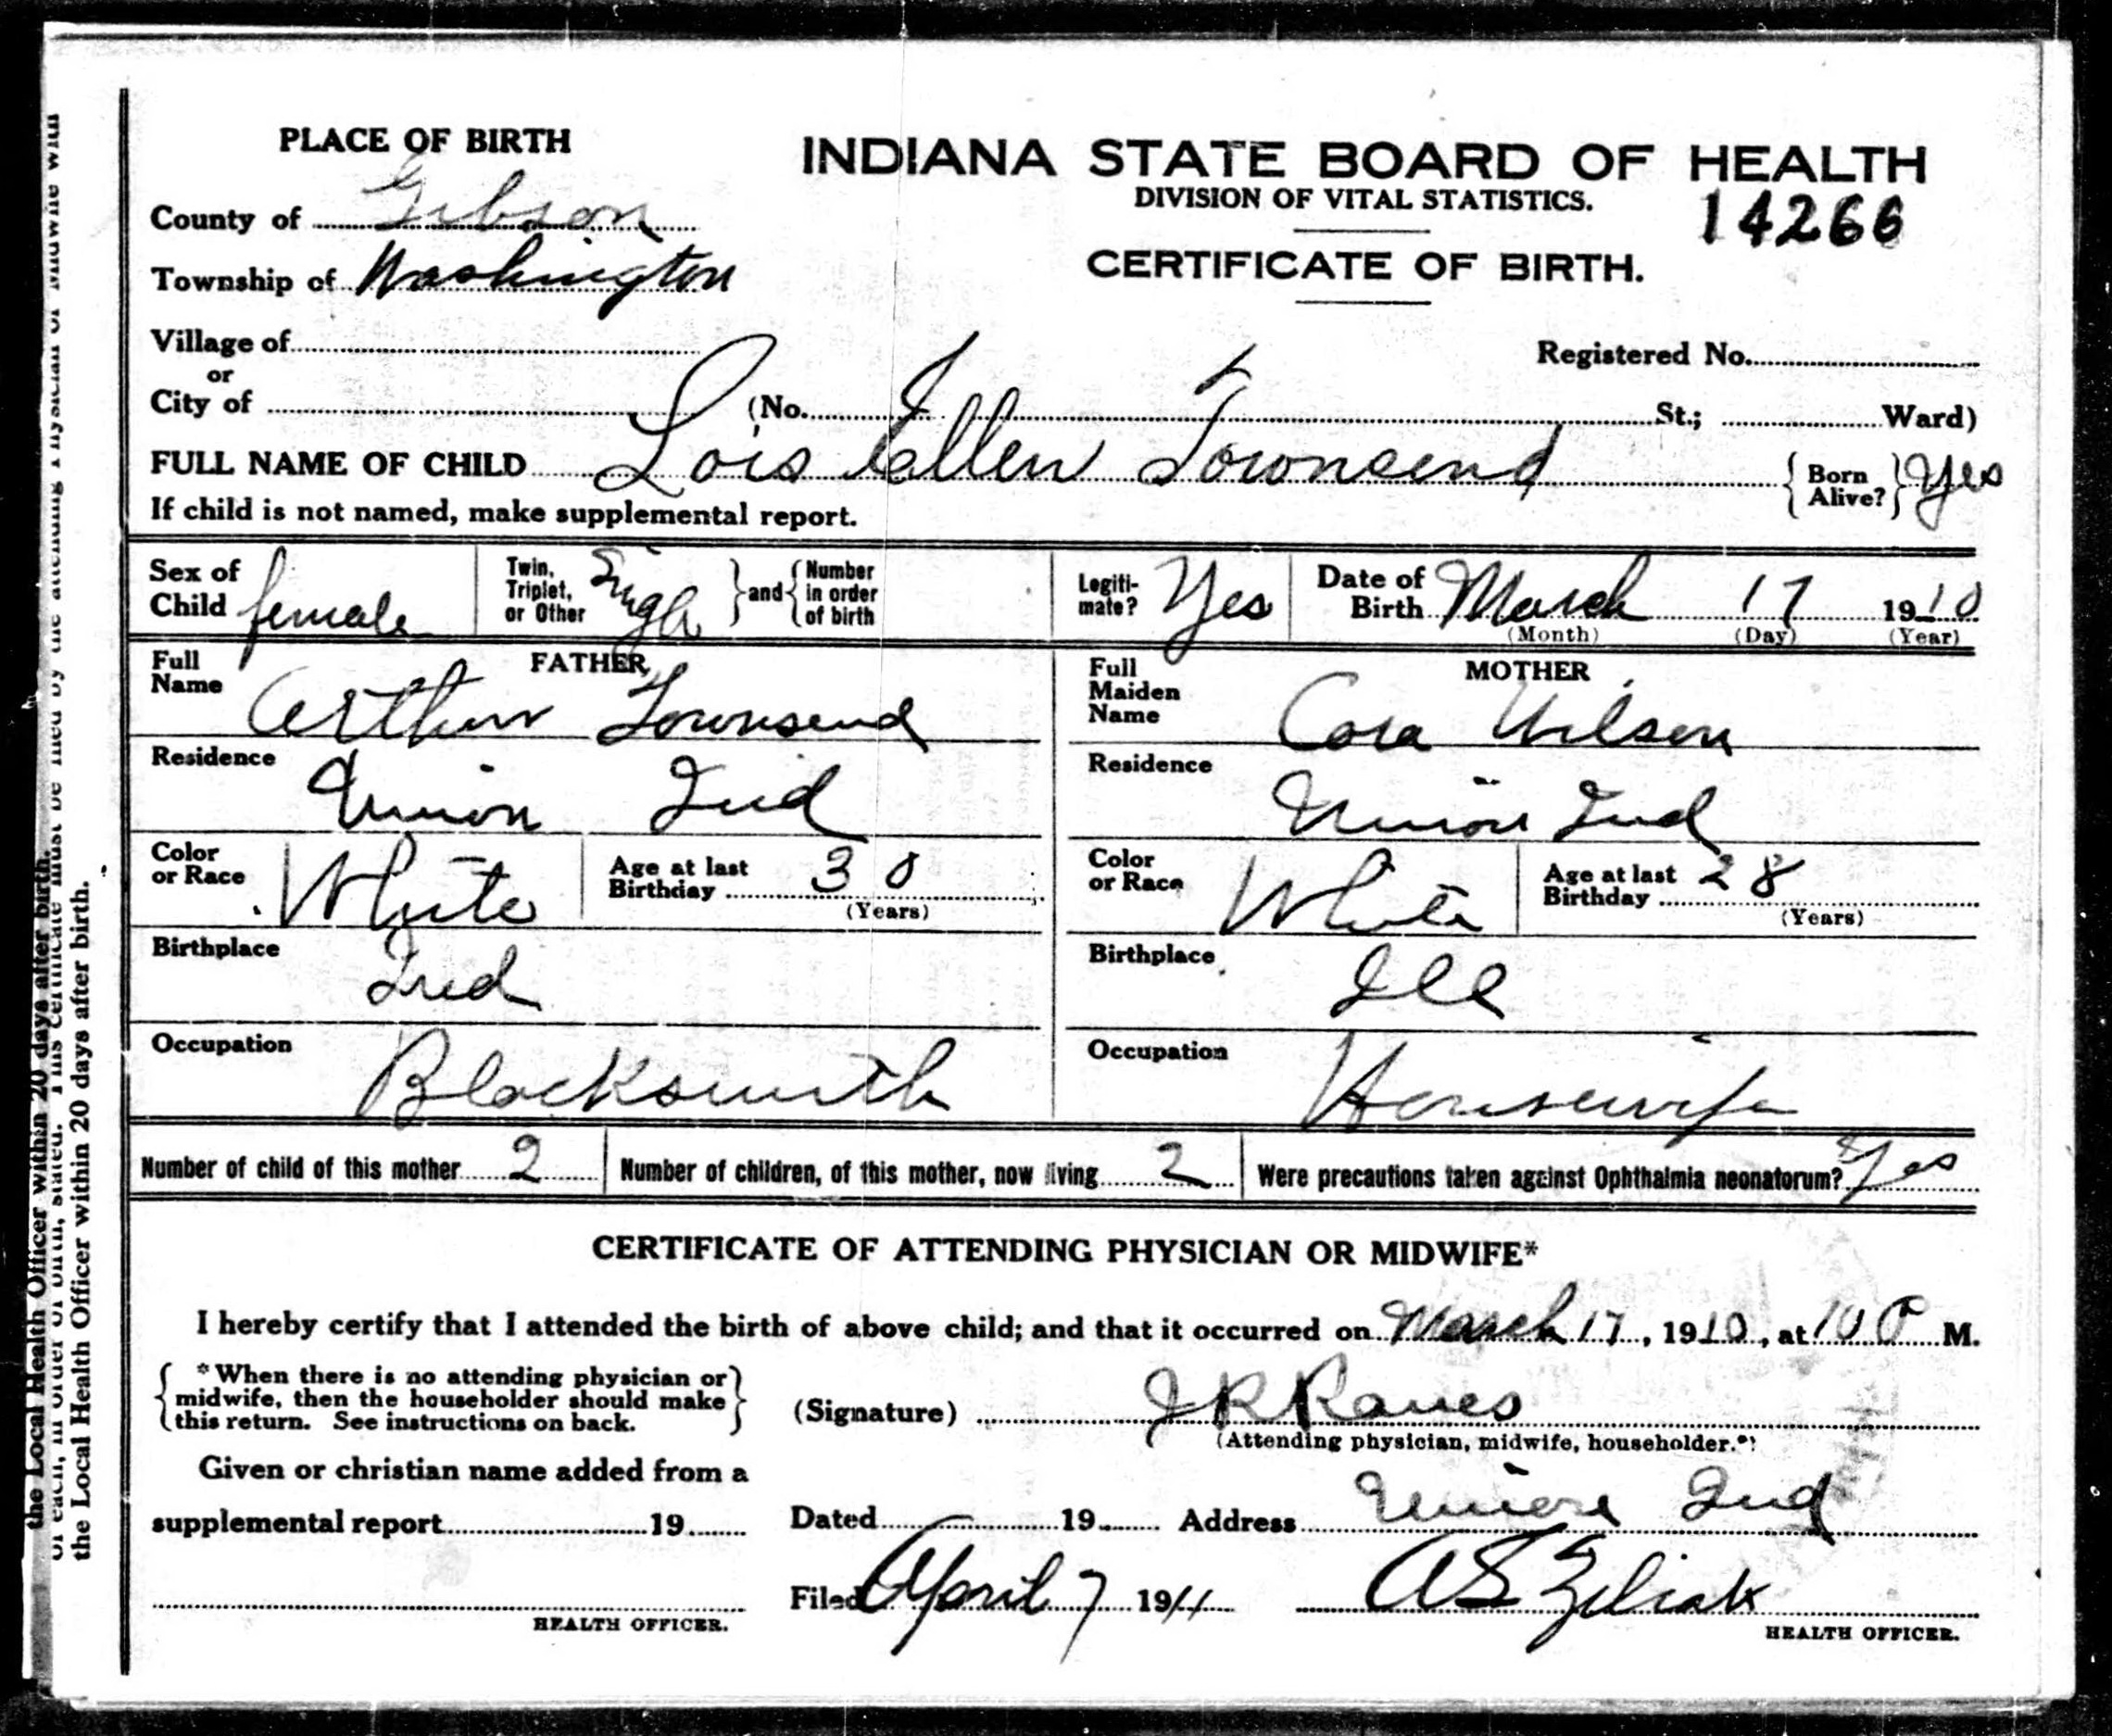 PLACE OF BIRTH
INDIANA STATE BOARD OF HEALTH
DIVISION OF VITAL STATISTICS.
14266
CERTIFICATE OF BIRTH.
County of Gibson
Township of Washington
Village of
or
City of
Registered No.
(No. St.; Ward)
FULL NAME OF CHILD Lois Ellen Townsend { Born Alive? } Yes
If child is not named, make supplemental report.
Sex of Child female
Twin, Triplet, or Other } and { Number in order of birth
Legiti-mate? Yes
Date of Birth March 17 1910
(Month) (Day) (Year)
FATHER
Full Name Arthur Townsend
Residence Union Ind
Color or Race White
Age at last Birthday 30
(Years)
Birthplace Ind
Occupation Blacksmith
MOTHER
Full Maiden Name Cora Wilson
Residence Union Ind
Color or Race White
Age at last Birthday 28
(Years)
Birthplace Ill
Occupation Housewife
Number of child of this mother 2
Number of children, of this mother, now living 2
Were precautions taken against Ophthalmia neonatorum? Yes
CERTIFICATE OF ATTENDING PHYSICIAN OR MIDWIFE*
I hereby certify that I attended the birth of above child; and that it occurred on March 17, 1910, at 10 P M.
{ *When there is no attending physician or
midwife, then the householder should make
this return. See instructions on back. }
(Signature) J R
(Attending physician, midwife, householder.*)
Given or christian name added from a
supplemental report 19
Dated 19 Address Union Ind
Filed April 7 1911
HEALTH OFFICER.
HEALTH OFFICER.
the Local Health Officer within 20 days after birth.
the Local Health Officer within 20 days after birth.